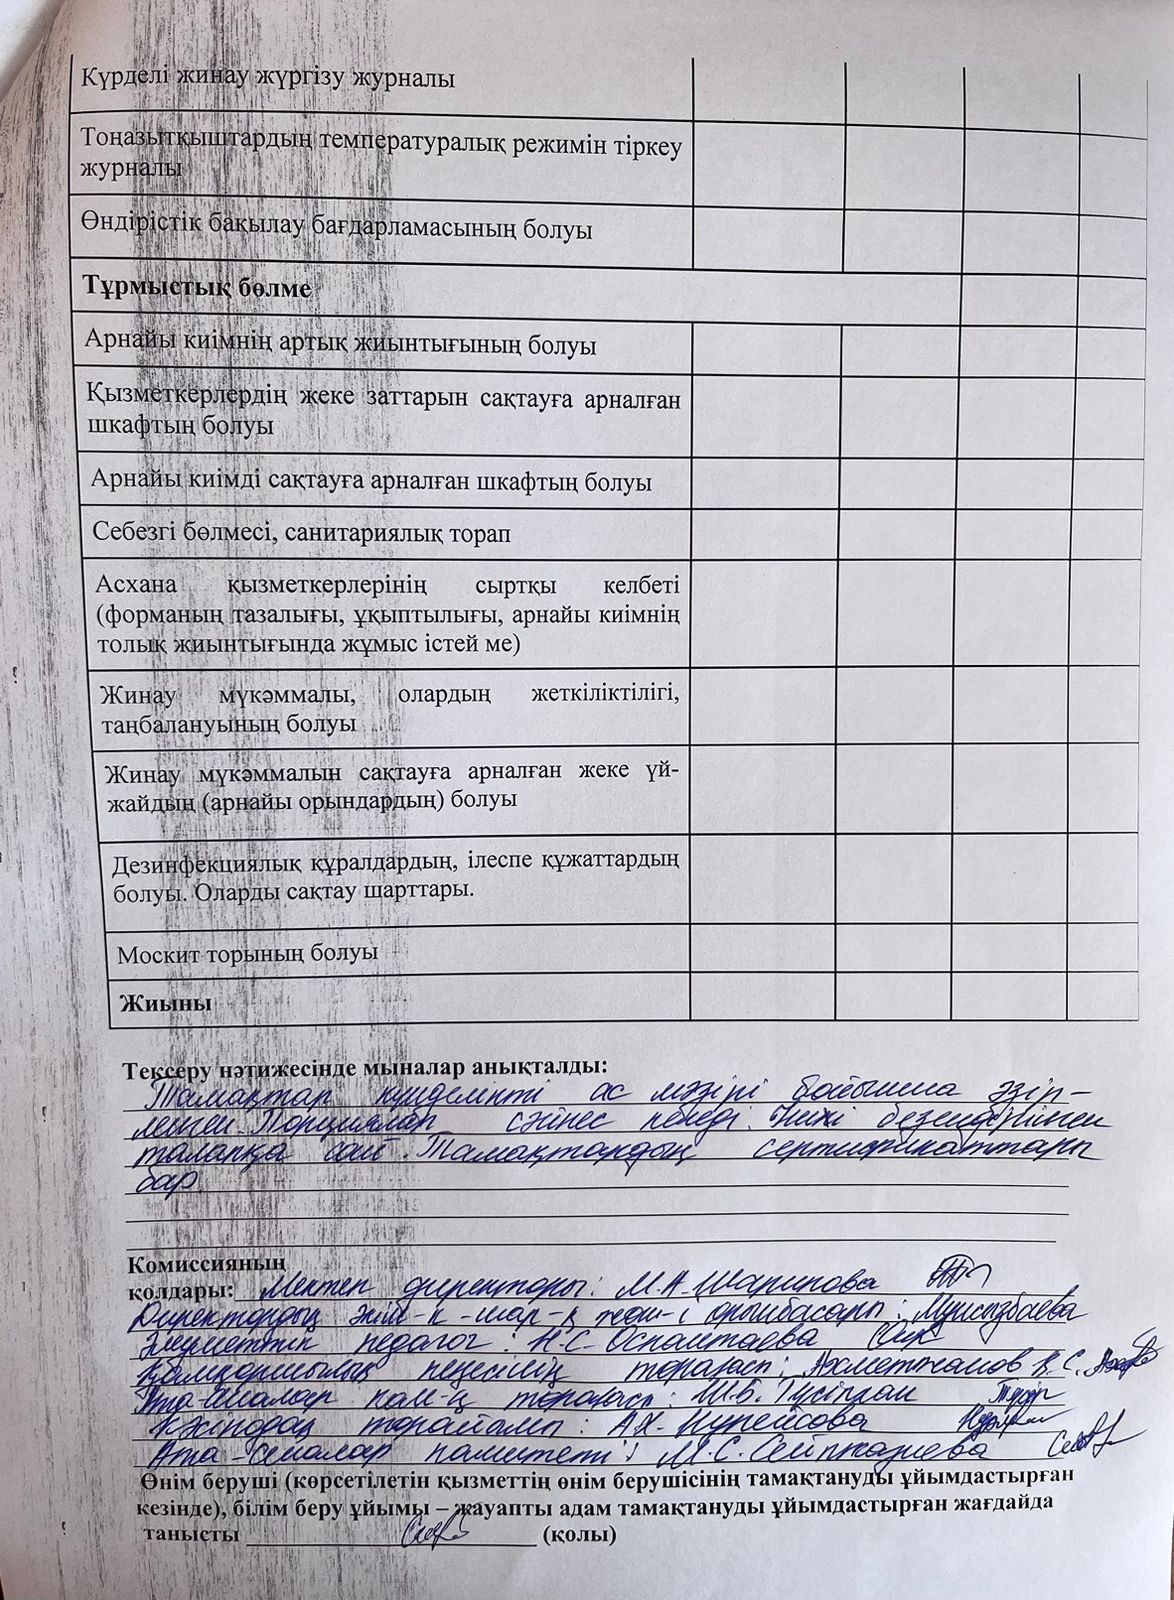 Күрделі жинау жүргізу журналы
Тоңазытқыштардың температуралық режимін тіркеу
журналы
Өндірістік бақылау бағдарламасының болуы
Тұрмыстық бөлме
Арнайы киімнің артық жиынтығының болуы
Қызметкерлердің жеке заттарын сақтауға арналған
шкафтың болуы
Арнайы киімді сақтауға арналған шкафтың болуы
Себезгі бөлмесі, санитариялық торап
Асхана қызметкерлерінің сыртқы келбеті
(форманың тазалығы, ұқыптылығы, арнайы киімнің
толық жиынтығында жұмыс істей ме)
Жинау мүкәммалы, олардың жеткіліктілігі,
таңбалануының болуы
Жинау мүкәммалын сақтауға арналған жеке үй-
жайдың (арнайы орындардың) болуы
Дезинфекциялық құралдардың, ілеспе құжаттардың
болуы. Оларды сақтау шарттары.
Москит торының болуы
Жиыны
Тексеру нәтижесінде мыналар анықталды:
Тамақтар күнделікті ас мәзірі бойынша әзір-
ленген. Порциялар сәйкес келеді. безендірілген
талапқа сай. Тамақтардың сертификаттары
бар.
Комиссияның
қолдары: Мектеп директоры: М.А. Шарипова
Директордың орынбасары:
Әлеуметтік педагог: Н.С. Оспантаева
Қамқоршылық кеңесінің төрағасы: Ахметжанов Қ.С.
Ата-аналар ком-ң төрағасы: Ш.Б. Түсіпхан
Кәсіподақ төрайымы: А.Х.
Ата-аналар комитеті: М.С.
Өнім беруші (көрсетілетін қызметтің өнім берушісінің тамақтануды ұйымдастырған
кезінде), білім беру ұйымы – жауапты адам тамақтануды ұйымдастырған жағдайда
танысты (қолы)